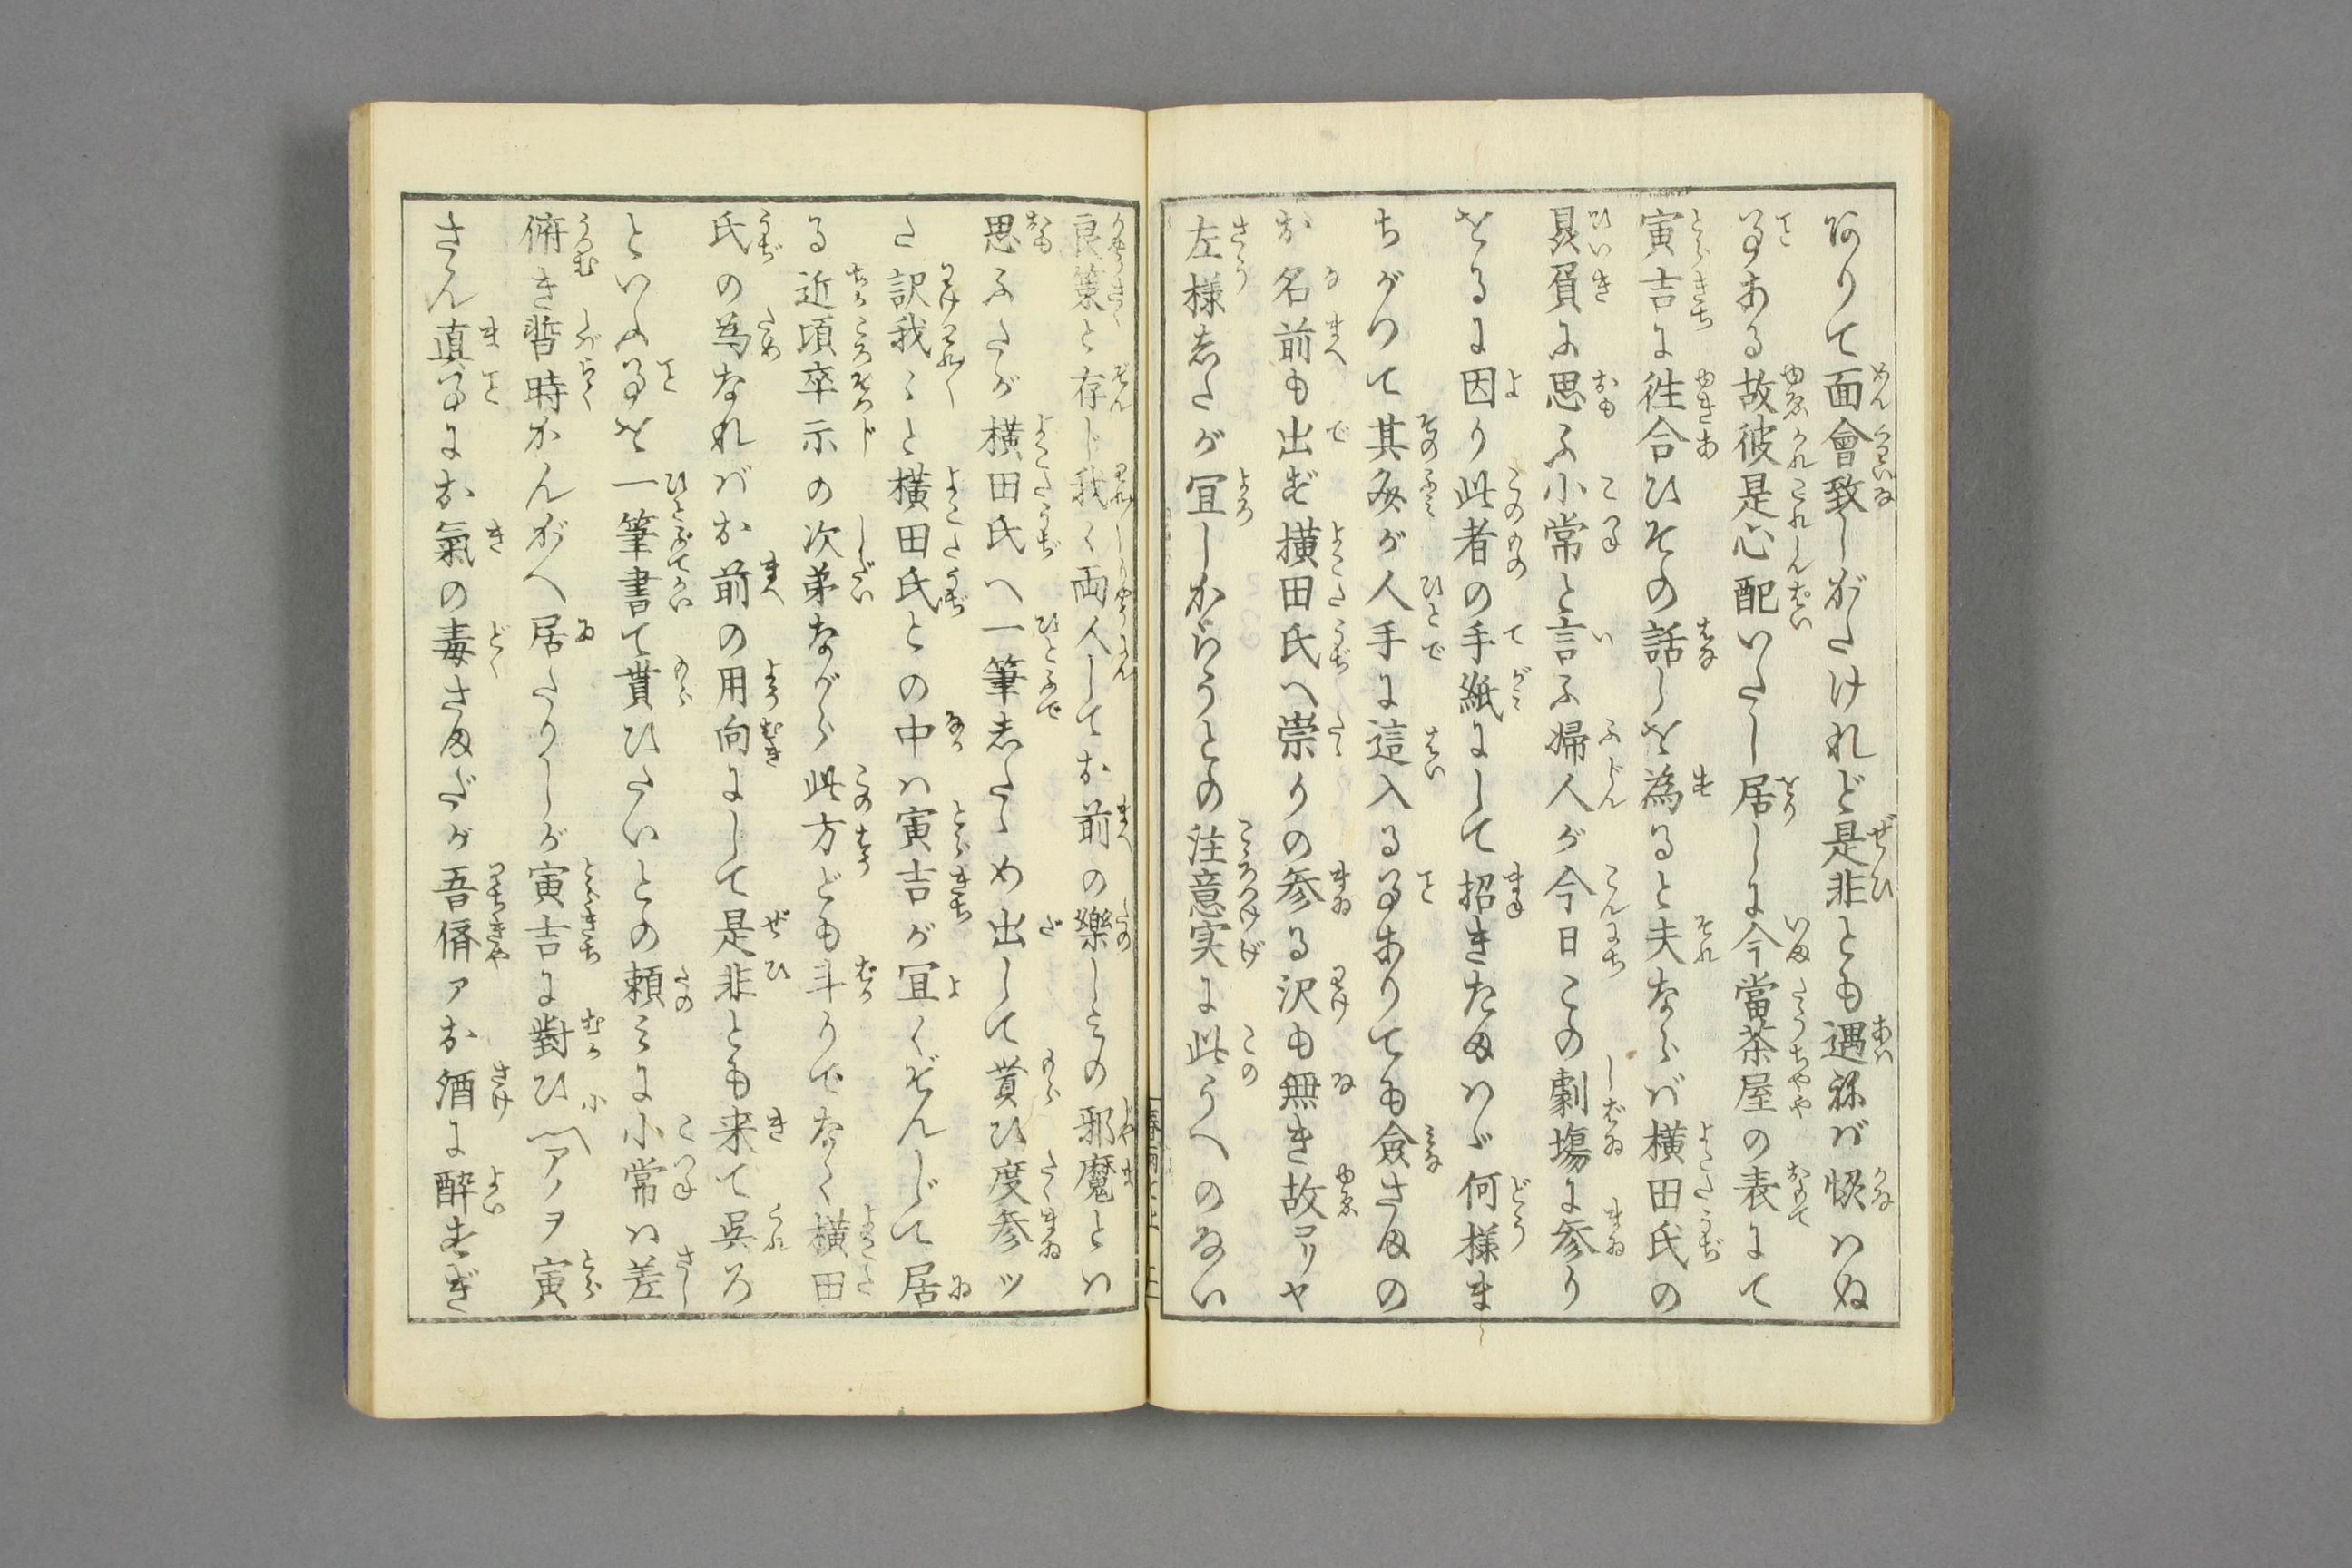 ありて面會致しがたけれど是非とも遇ねば愜はぬ
事ある故彼是心配いたし居しに今當茶屋の表にて
寅吉に徃合ひその話しを為ると夫ならば横田氏の
贔屓に思ふ小常と言ふ婦人が今日この劇塲に参り
をるに因り此者の手紙にして招きたまはゞ何様ま
ちがつて其文が人手に這入る事ありても僉さまの
お名前も出ず横田氏へ祟りの参る沢も無き故コリヤ
左様志たが宜しからうとの注意実に此うへのない
良策と存じ我〻両人してお前の樂しとの邪魔とは
思ふたが横田氏へ一筆志たゝめ出して貰ひ度参ッ
た訳我〻と横田氏との中は寅吉が宜くぞんじて居
る近頃卒示の次第ながら此方ども斗りでなく横田
氏の為なればお前の用向にして是非とも来て呉ろ
といふ事を一筆書て貰ひたいとの頼みに小常は差
俯き暫時かんがへ居たりしが寅吉に對ひ小〽アノヲ寅
さん真事にお氣の毒さまだが吾儕アお酒に醉すぎ